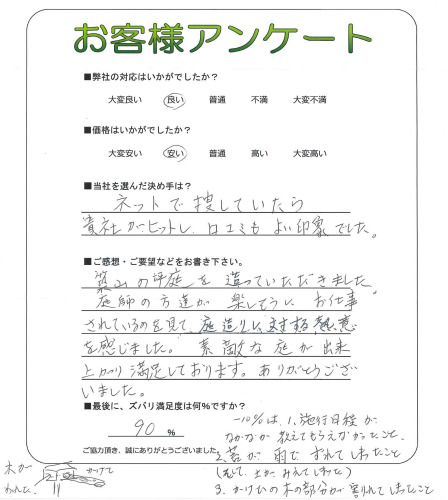 お客様アンケート
■弊社の対応はいかがでしたか？
大変良い 良い 普通 不満 大変不満
■価格はいかがでしたか？
大変安い 安い 普通 高い 大変高い
■当社を選んだ決め手は？
ネットで捜していたら
貴社がヒットし、口コミもよい印象でした。
■ご感想・ご要望などをお書き下さい。
築山の坪庭を造っていただきました
庭師の方達が楽しそうにお仕事
されているのを見て、庭造りに対する熱意
を感じました。素敵な庭が出来
上がり満足しております。ありがとうござい
いました。
■最後に、ズバリ満足度は何％ですか？
90 %
ご協力頂き、誠にありがとうございました
-10%は、1、施行日程が、
なかなか教えてもらえなかったこと、
2、苔が雨でずれてしまったこと
(そして、土がみえてしまった)
3、かけひの木の部分が割れてしまったこと
木が
われた
かけて